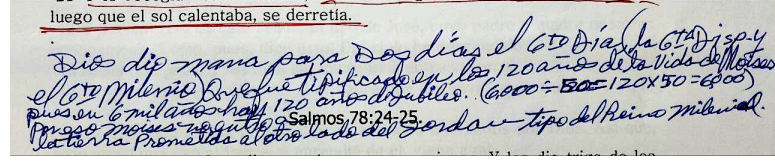 luego que el sol calentaba, se derretía.
Dios dio mana para Dos días el 6TO Día (la 6TA Disp. y
el 6TO Milenio) Que fue tipificado en los 120 años de la Vida de Moises
pues en 6 mil años hay 120 años de Jubileo. (6000 ÷ 50 = 120 x 50 = 6000)
Por eso moises no
Salmos 78:24-25.
la tierra Prometida al otro lado del Jordan tipo del Reino Milenial.